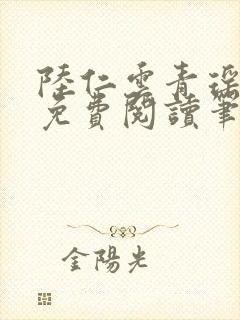 陸仁雲青瑶
免費閱讀筆
金陽光